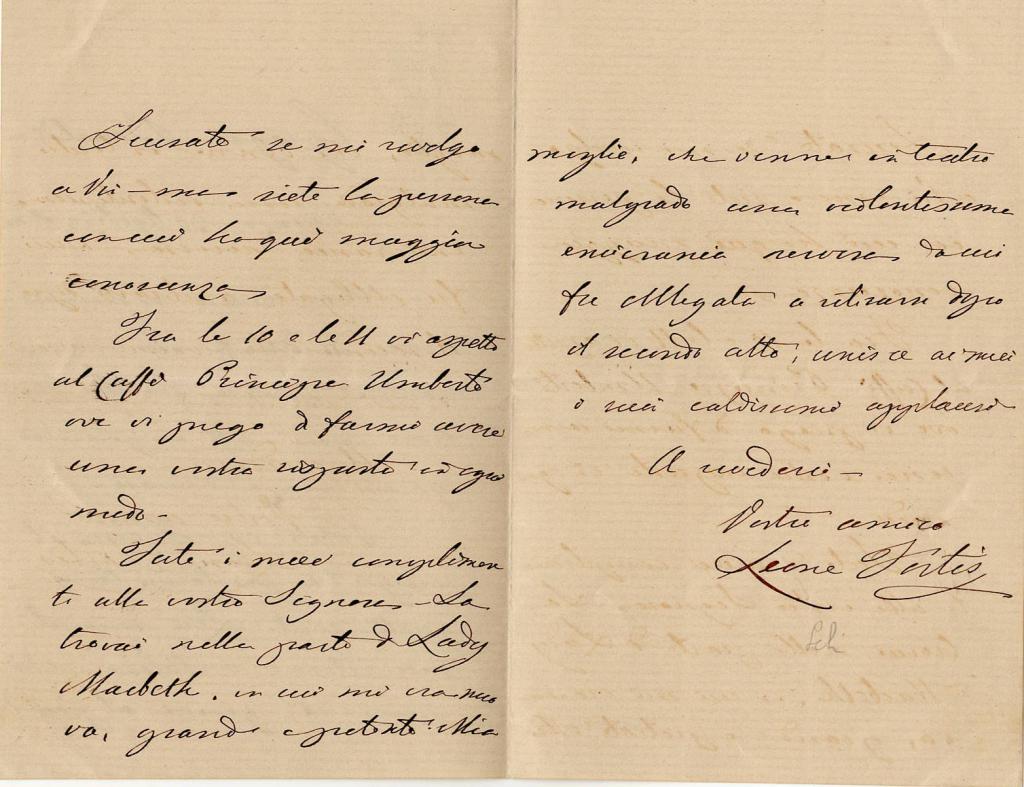 Scusate se mi rivolgo
a Voi – ma siete la persona
con cui ho qui maggior
conoscenza
Fra le 10 e le 11 vi aspetto
al Caffè Principe Umberto
ove vi prego di farmi avere
una vostra risposta in ogni
modo –
Fate i miei complimen
ti alla vostra Signora – La
trovai nella parte di Lady
Macbeth, in cui mi era nuo
va, grande e potente. Mia
moglie, che venne in teatro
malgrado una violentissima
emicrania nervosa da cui
fu obbligata a ritirarsi dopo
il secondo atto, unisce ai miei
i suoi caldissimi applausi
A rivederci –
Vostro amico
Leone Fortis